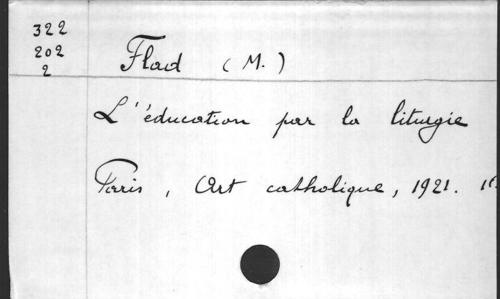 322
202
2
Flad (M.)
L'éducation par la liturgie
Paris, Art catholique, 1921.